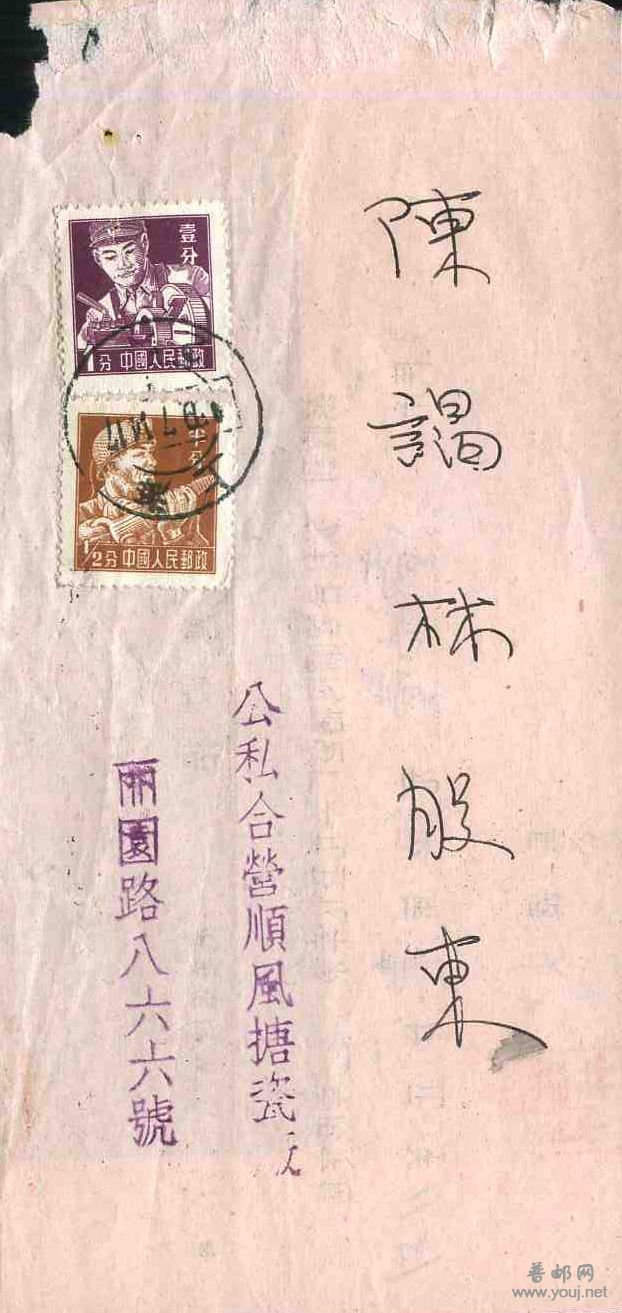 陳謁林股東
公私合營順風搪瓷
丽園路八六六號
壹分
1分 中國人民郵政
半分
1/2分 中國人民郵政
普邮网
www.youj.net